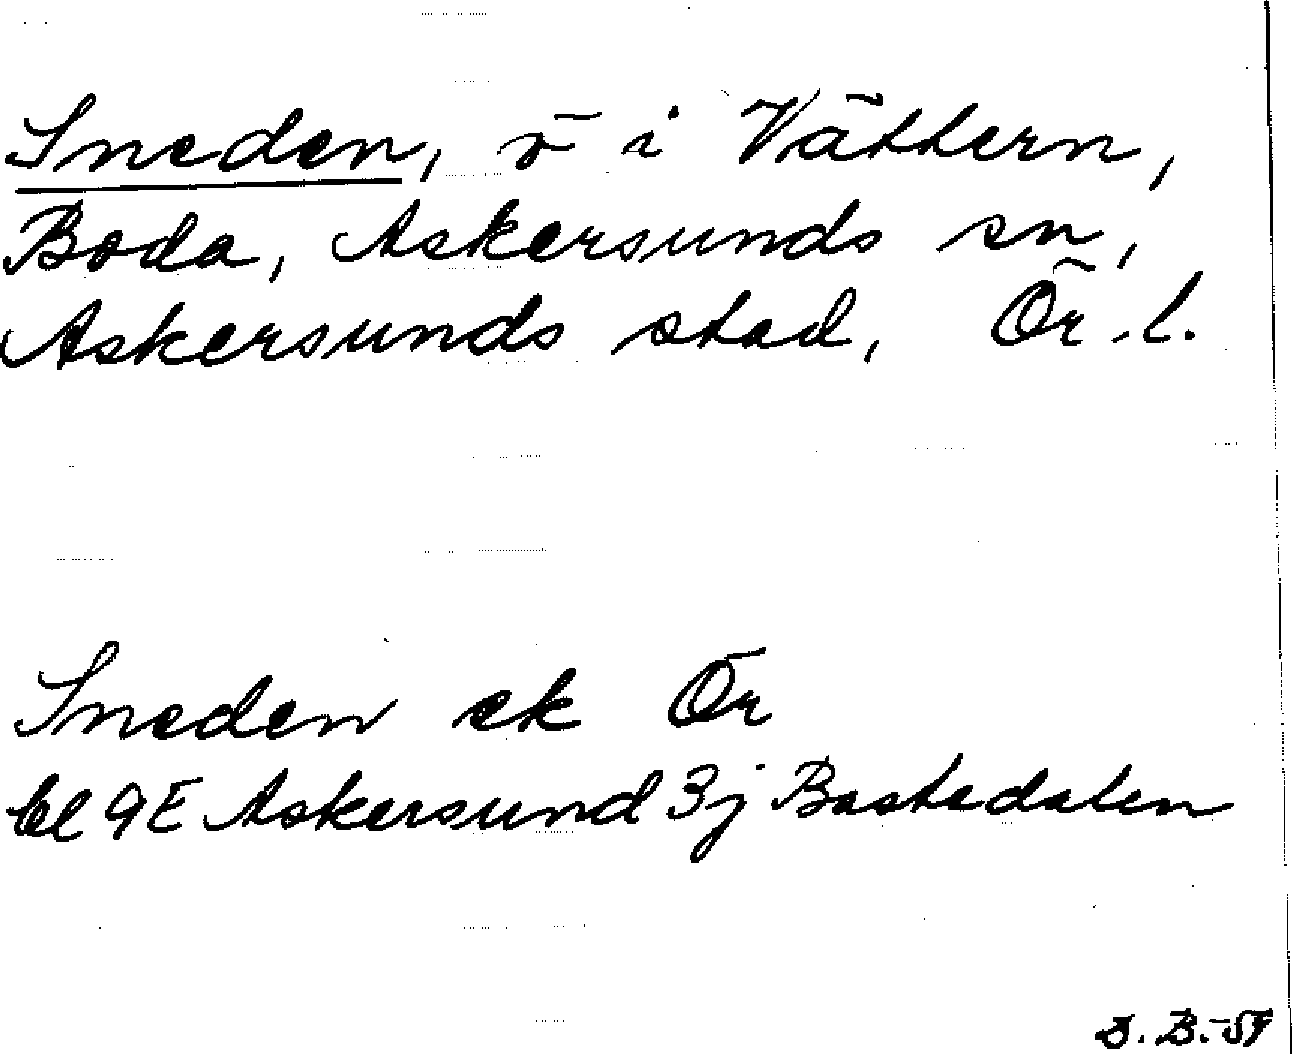 Sneden, ö i Vättern,
Boda, Askersunds sn,
Askersunds stad, Ör. l.
Sneden ek Ör
bl 9E Askersund 3j Bastedalen
B. B.-59